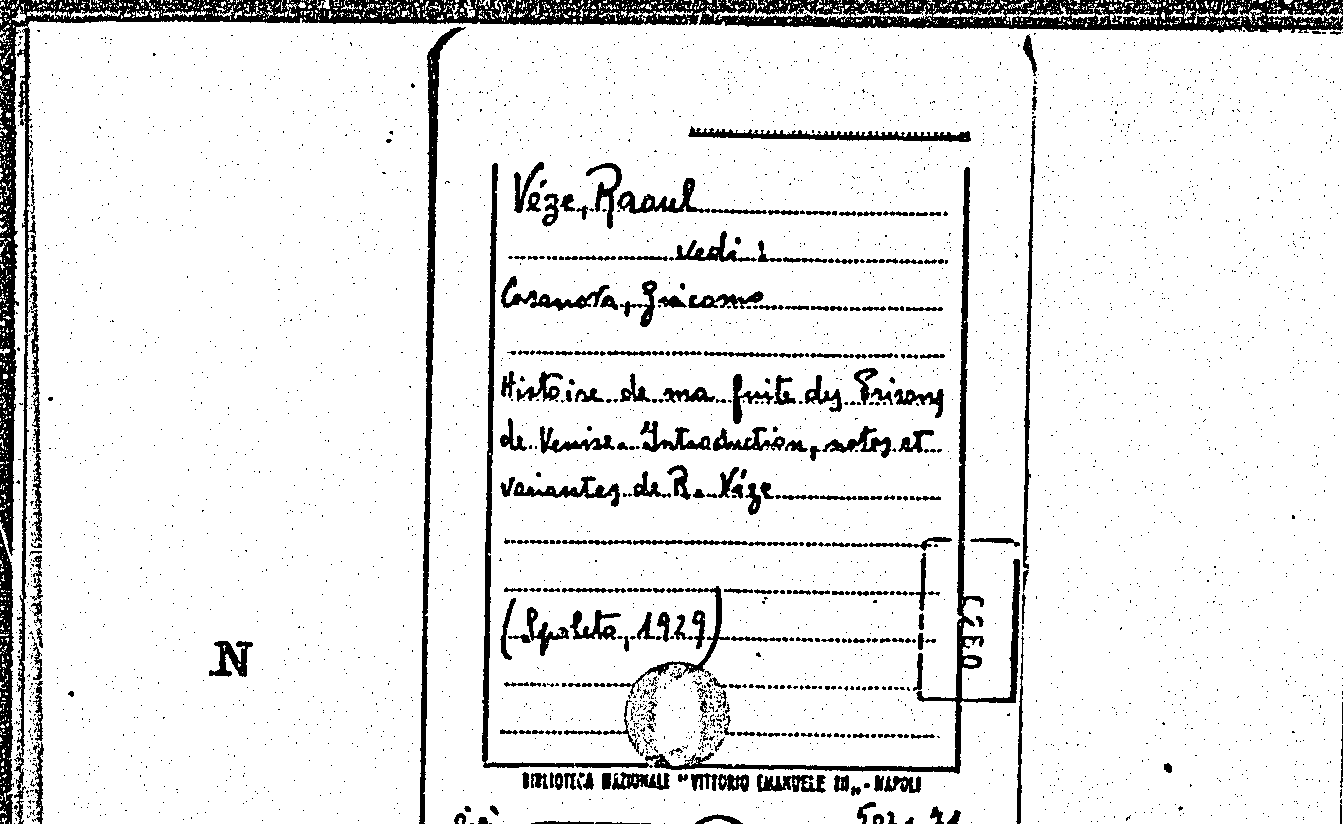 Vèze, Raoul
vedi:
Casanova, Giacomo
Histoire de ma fuite des Prisons
de Venise. Introduction, notes et
variantes de R. Vèze
(Spoleto, 1929)
0323
N
BIBLIOTECA NAZIONALE "VITTORIO EMANUELE III„ - NAPOLI